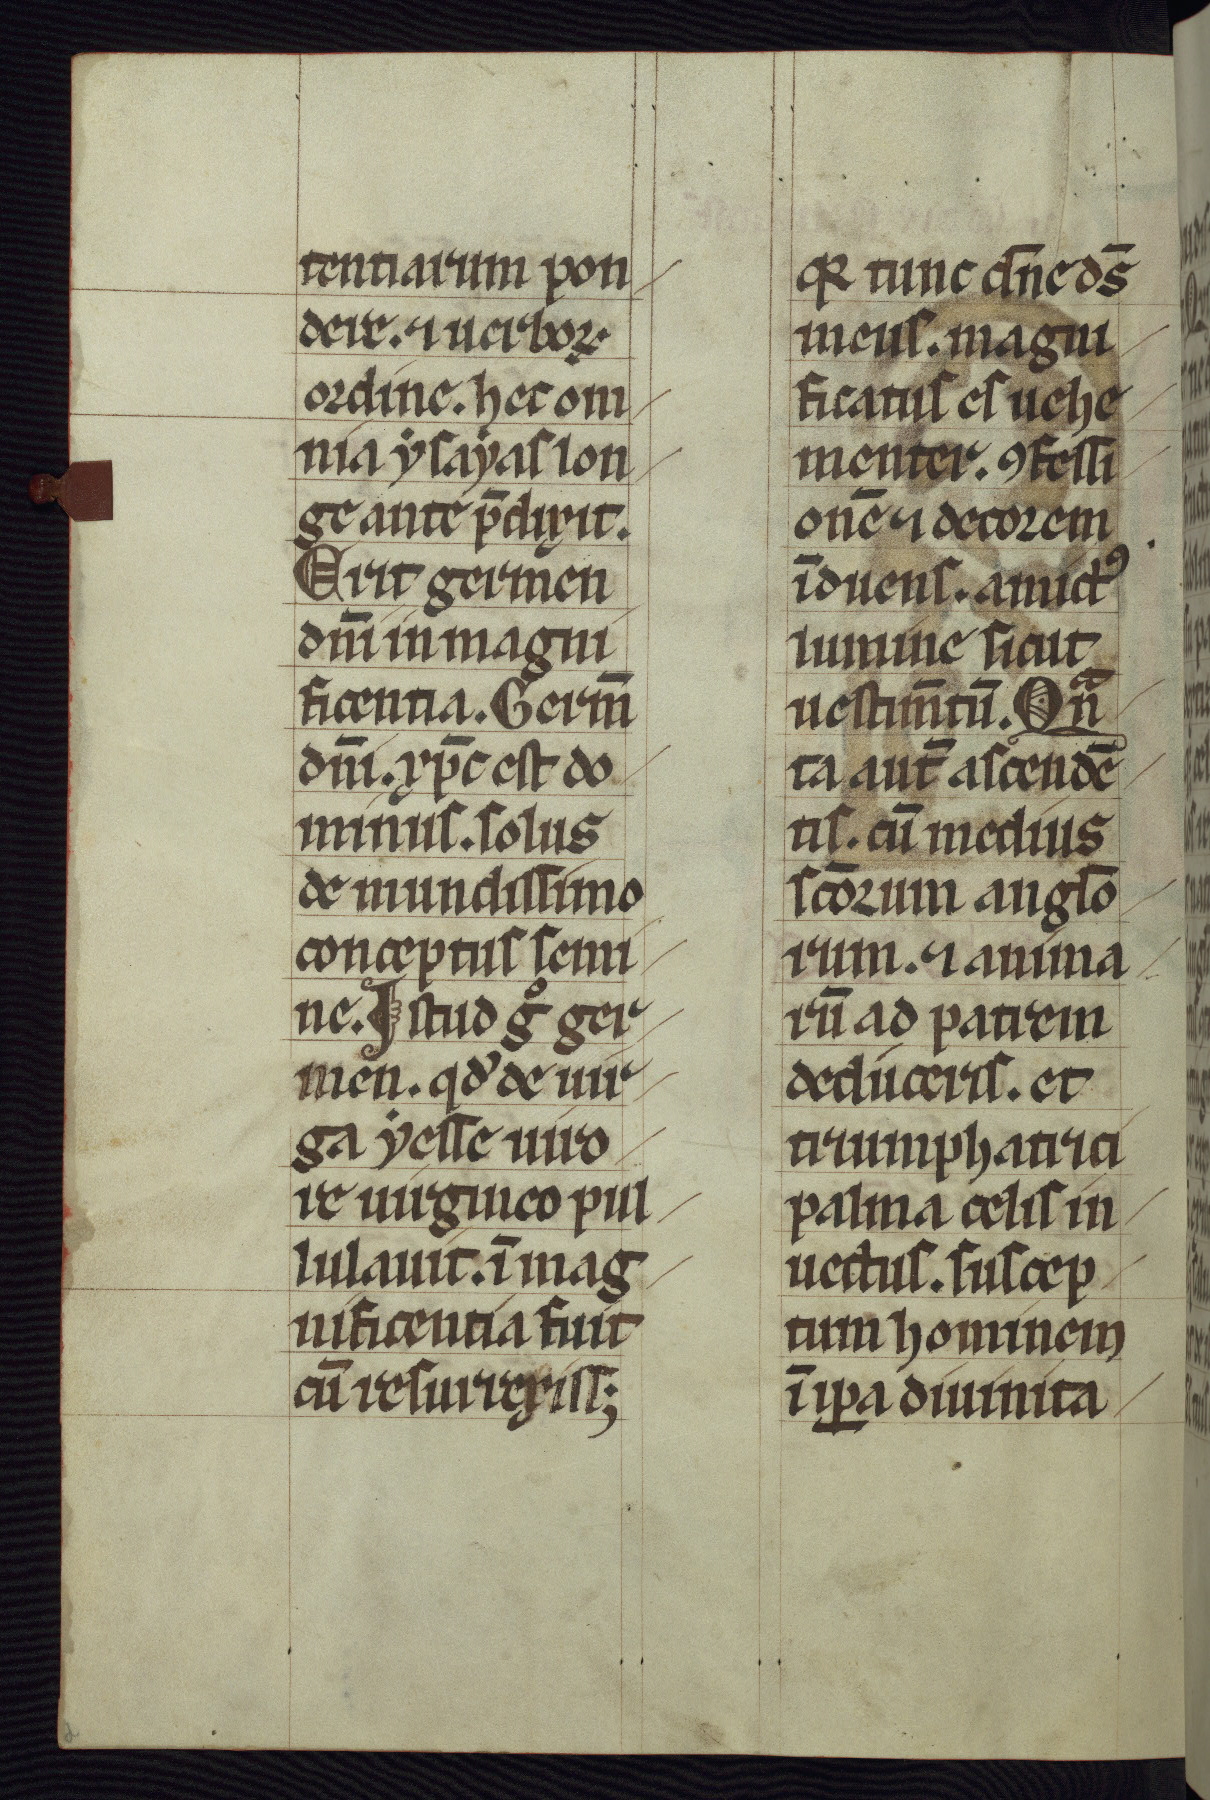 tentiarum pon
dere. ⁊ uerborꝝ
ordine. hec om
nia ẏsaẏas lon
ge ante p̄dixit.
Erit germen
dn̄i in magni
ficentia. Germ̄
dn̄i. xp̄c est do
minus. solus
de mundissimo
conceptus semi
ne. Istud gͦ ger
men. qd̓ de uir
ga ẏesse uiro
re uirgineo pul
lulauit. ī mag
nificentia fuit
cū resurrexiss;
qꝛ tunc dn̄e ds̄
meus. magni
ficatus es uehe
menter. ꝯfessi
onē ⁊ decorem
īduens. amictꝰ
lumine sicut
uestim̄tū. Qᵃn
ta aut̄ ascendē
tis. cū medius
sc̄orum angl̄o
rum. ⁊ anima
rū ad patrem
deduceris. et
triumphatrici
palma celis in
uectus. suscep
tum hominem
ī ip̄a diuinita